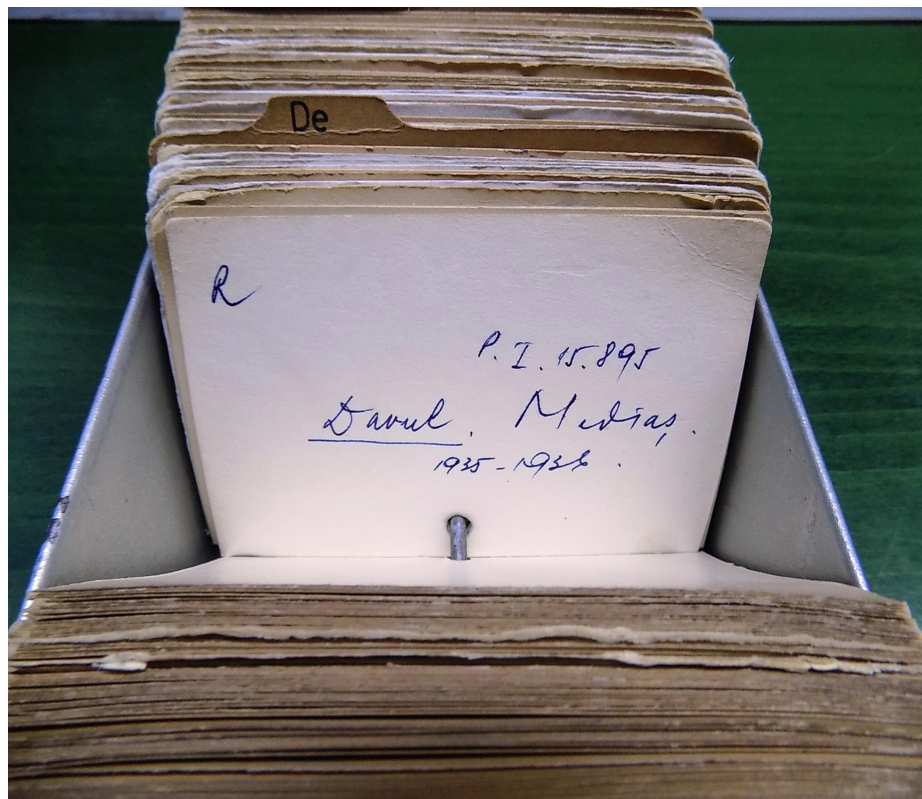 De
R
P. I. 15.895
Darul. Mediaș.
1935-1936.